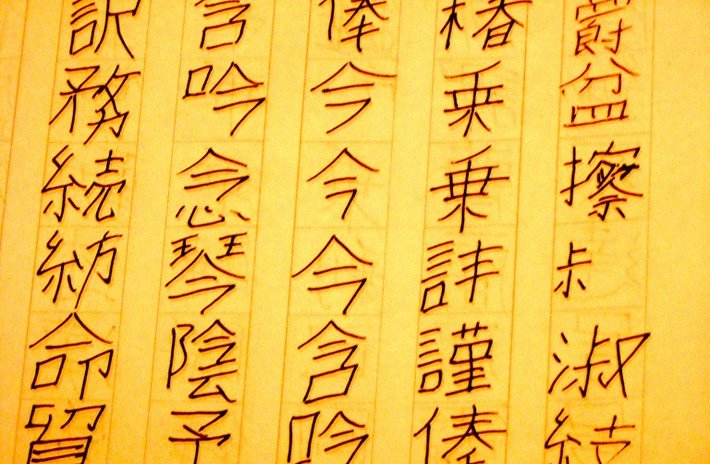 爵盆擦淑結
椿乗乗謹俸
俸今今今含吟
含吟念琴陰予
訳務続紡命貿